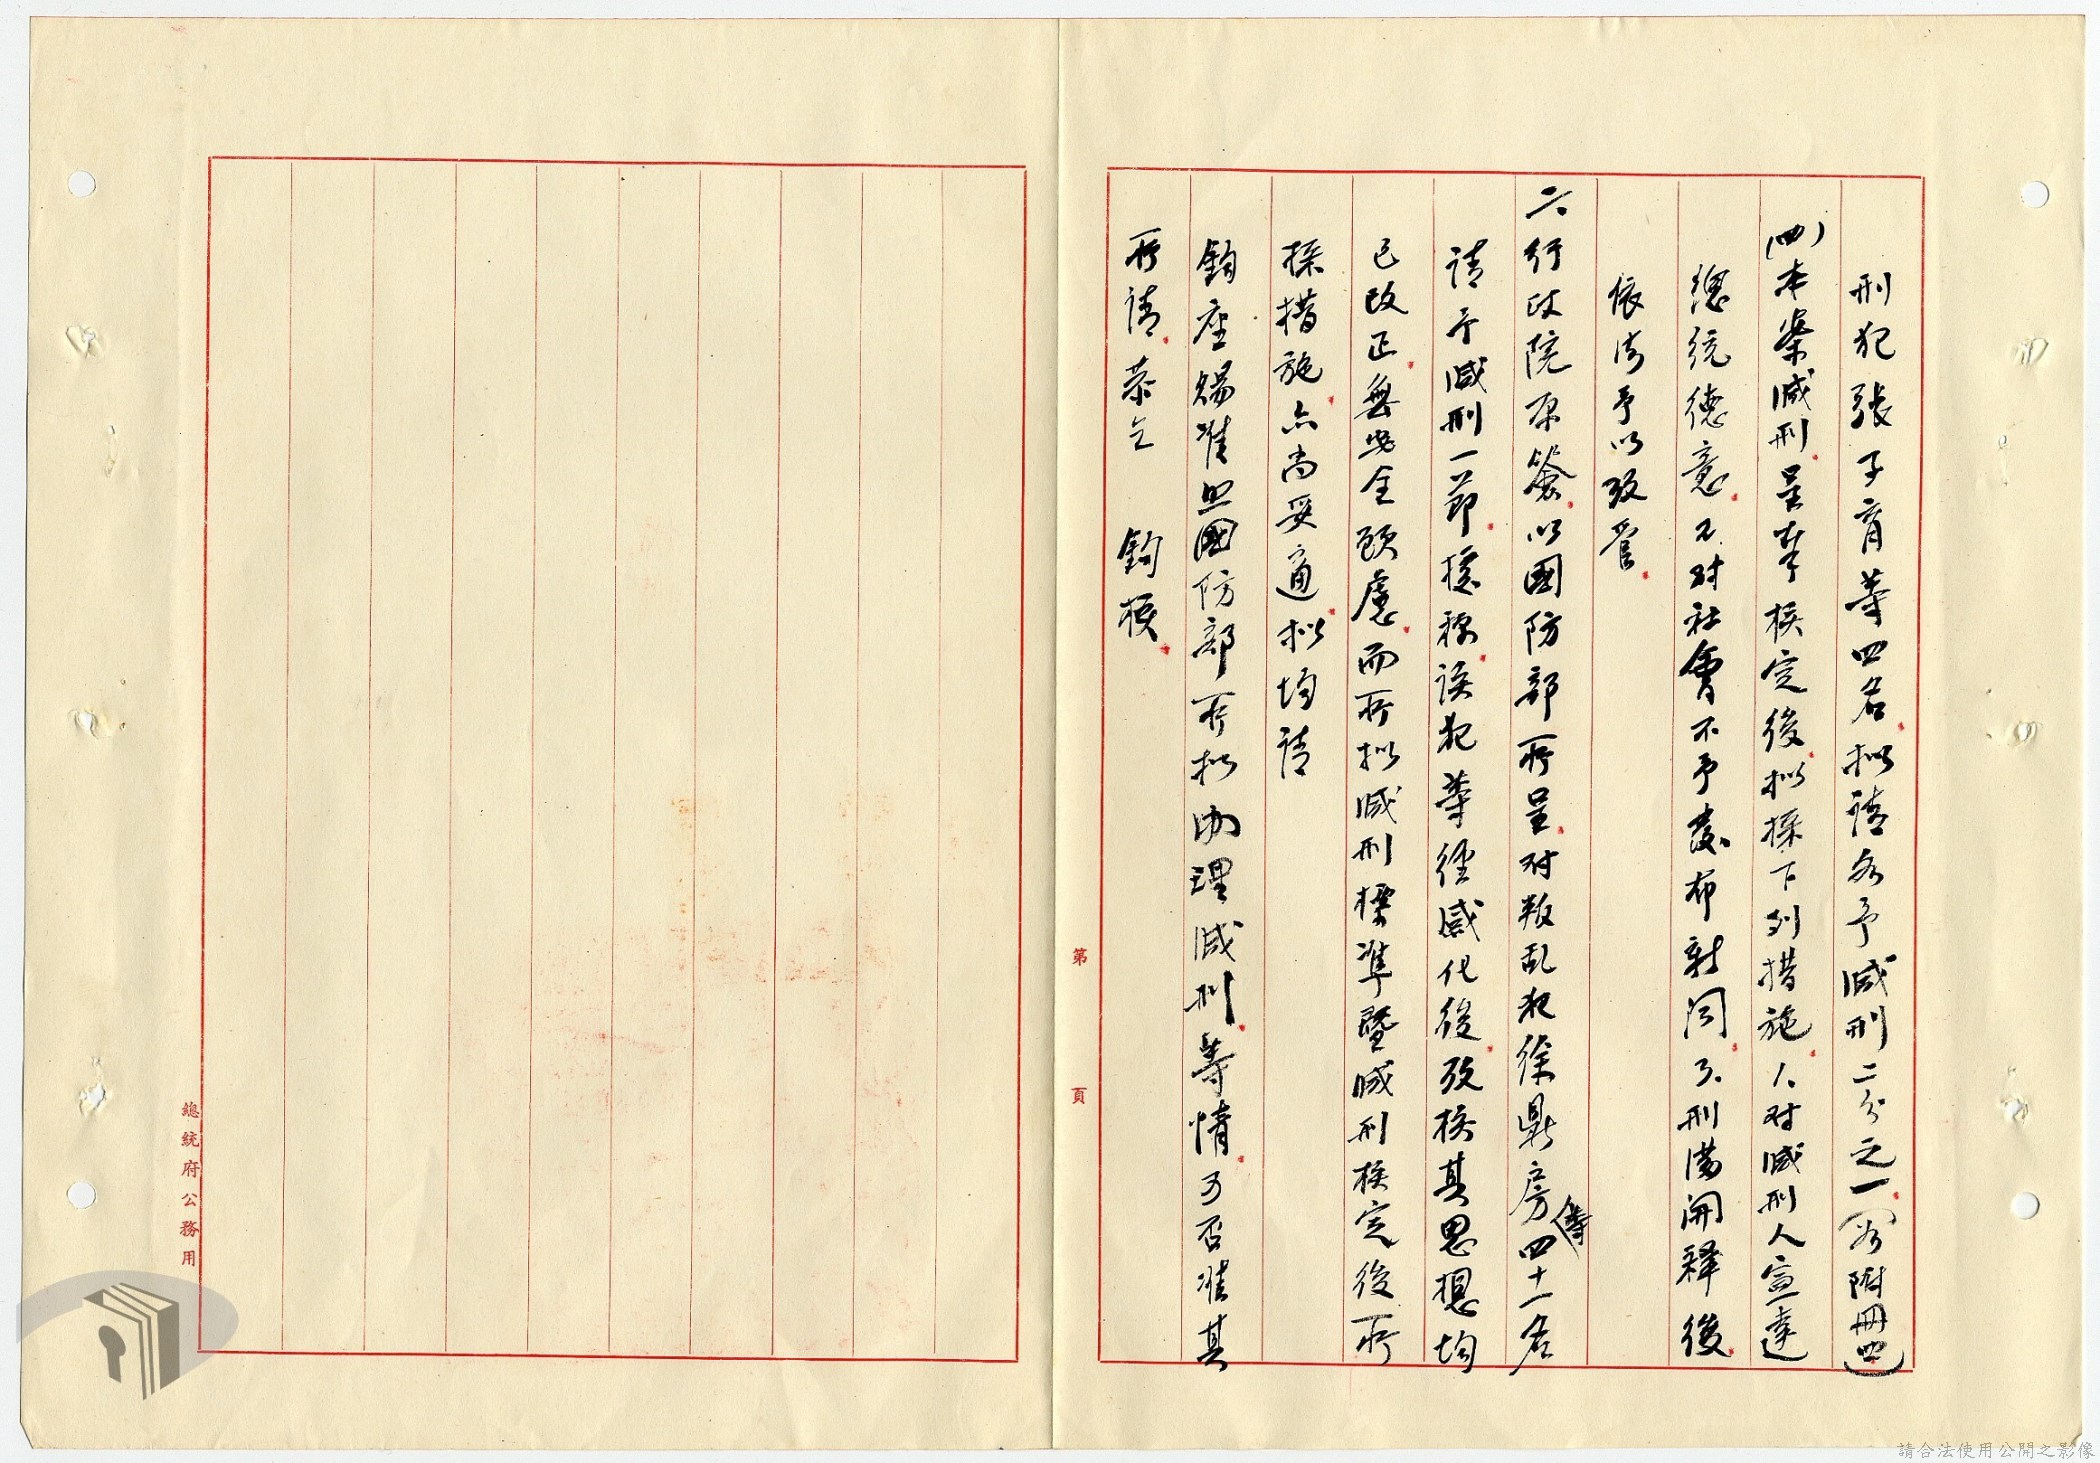 刑犯張子育等四名拟請各予減刑二分之一(如附冊四)
(四)本案減刑呈奉核定後拟採下列措施1.对減刑人宣達
總統德意2.对社會不予發布新闻3.刑滿開釋後
依法予以改管
二、行政院原簽以國防部所呈对叛乱犯徐鼎房等四十一名
請予減刑一節據称該犯等經感化後改核其思想均
已改正無安全顾慮而所拟減刑標準暨減刑核定後所
採措施亦尚妥適拟均請
鈞座賜准照國防部所拟办理減刑等情可否准其
所請恭乞 鈞核
第 頁
總統府公務用
請合法使用公開之影像